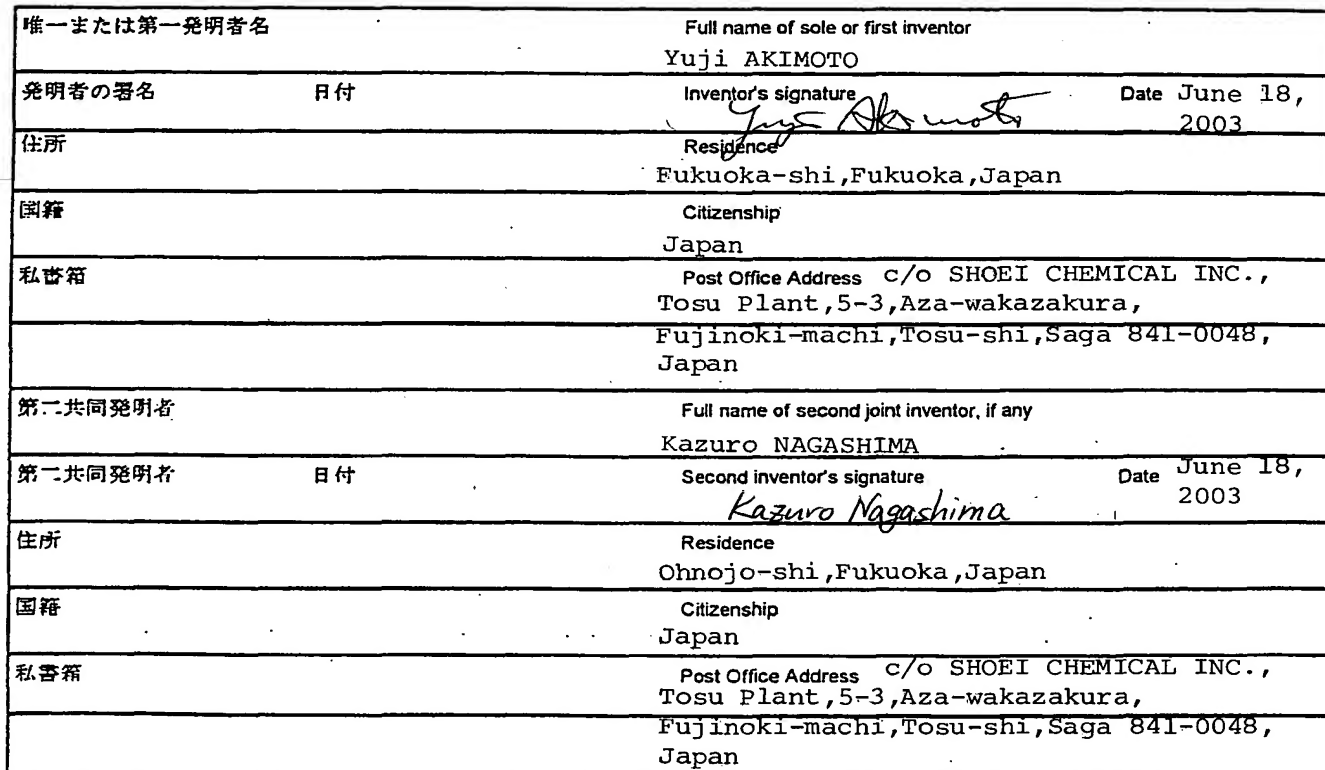 唯一または第一発明者名 Full name of sole or first inventor
Yuji AKIMOTO
発明者の署名 日付 Inventor's signature Date June 18,
Yuji Akimoto 2003
住所 Residence
Fukuoka-shi,Fukuoka,Japan
国籍 Citizenship
Japan
私書箱 Post Office Address c/o SHOEI CHEMICAL INC.,
Tosu Plant,5-3,Aza-wakazakura,
Fujinoki-machi,Tosu-shi,Saga 841-0048,
Japan
第二共同発明者 Full name of second joint inventor, if any
Kazuro NAGASHIMA
第二共同発明者 日付 Second inventor's signature Date June 18,
Kazuro Nagashima 2003
住所 Residence
Ohnojo-shi,Fukuoka,Japan
国籍 Citizenship
Japan
私書箱 Post Office Address c/o SHOEI CHEMICAL INC.,
Tosu Plant,5-3,Aza-wakazakura,
Fujinoki-machi,Tosu-shi,Saga 841-0048,
Japan